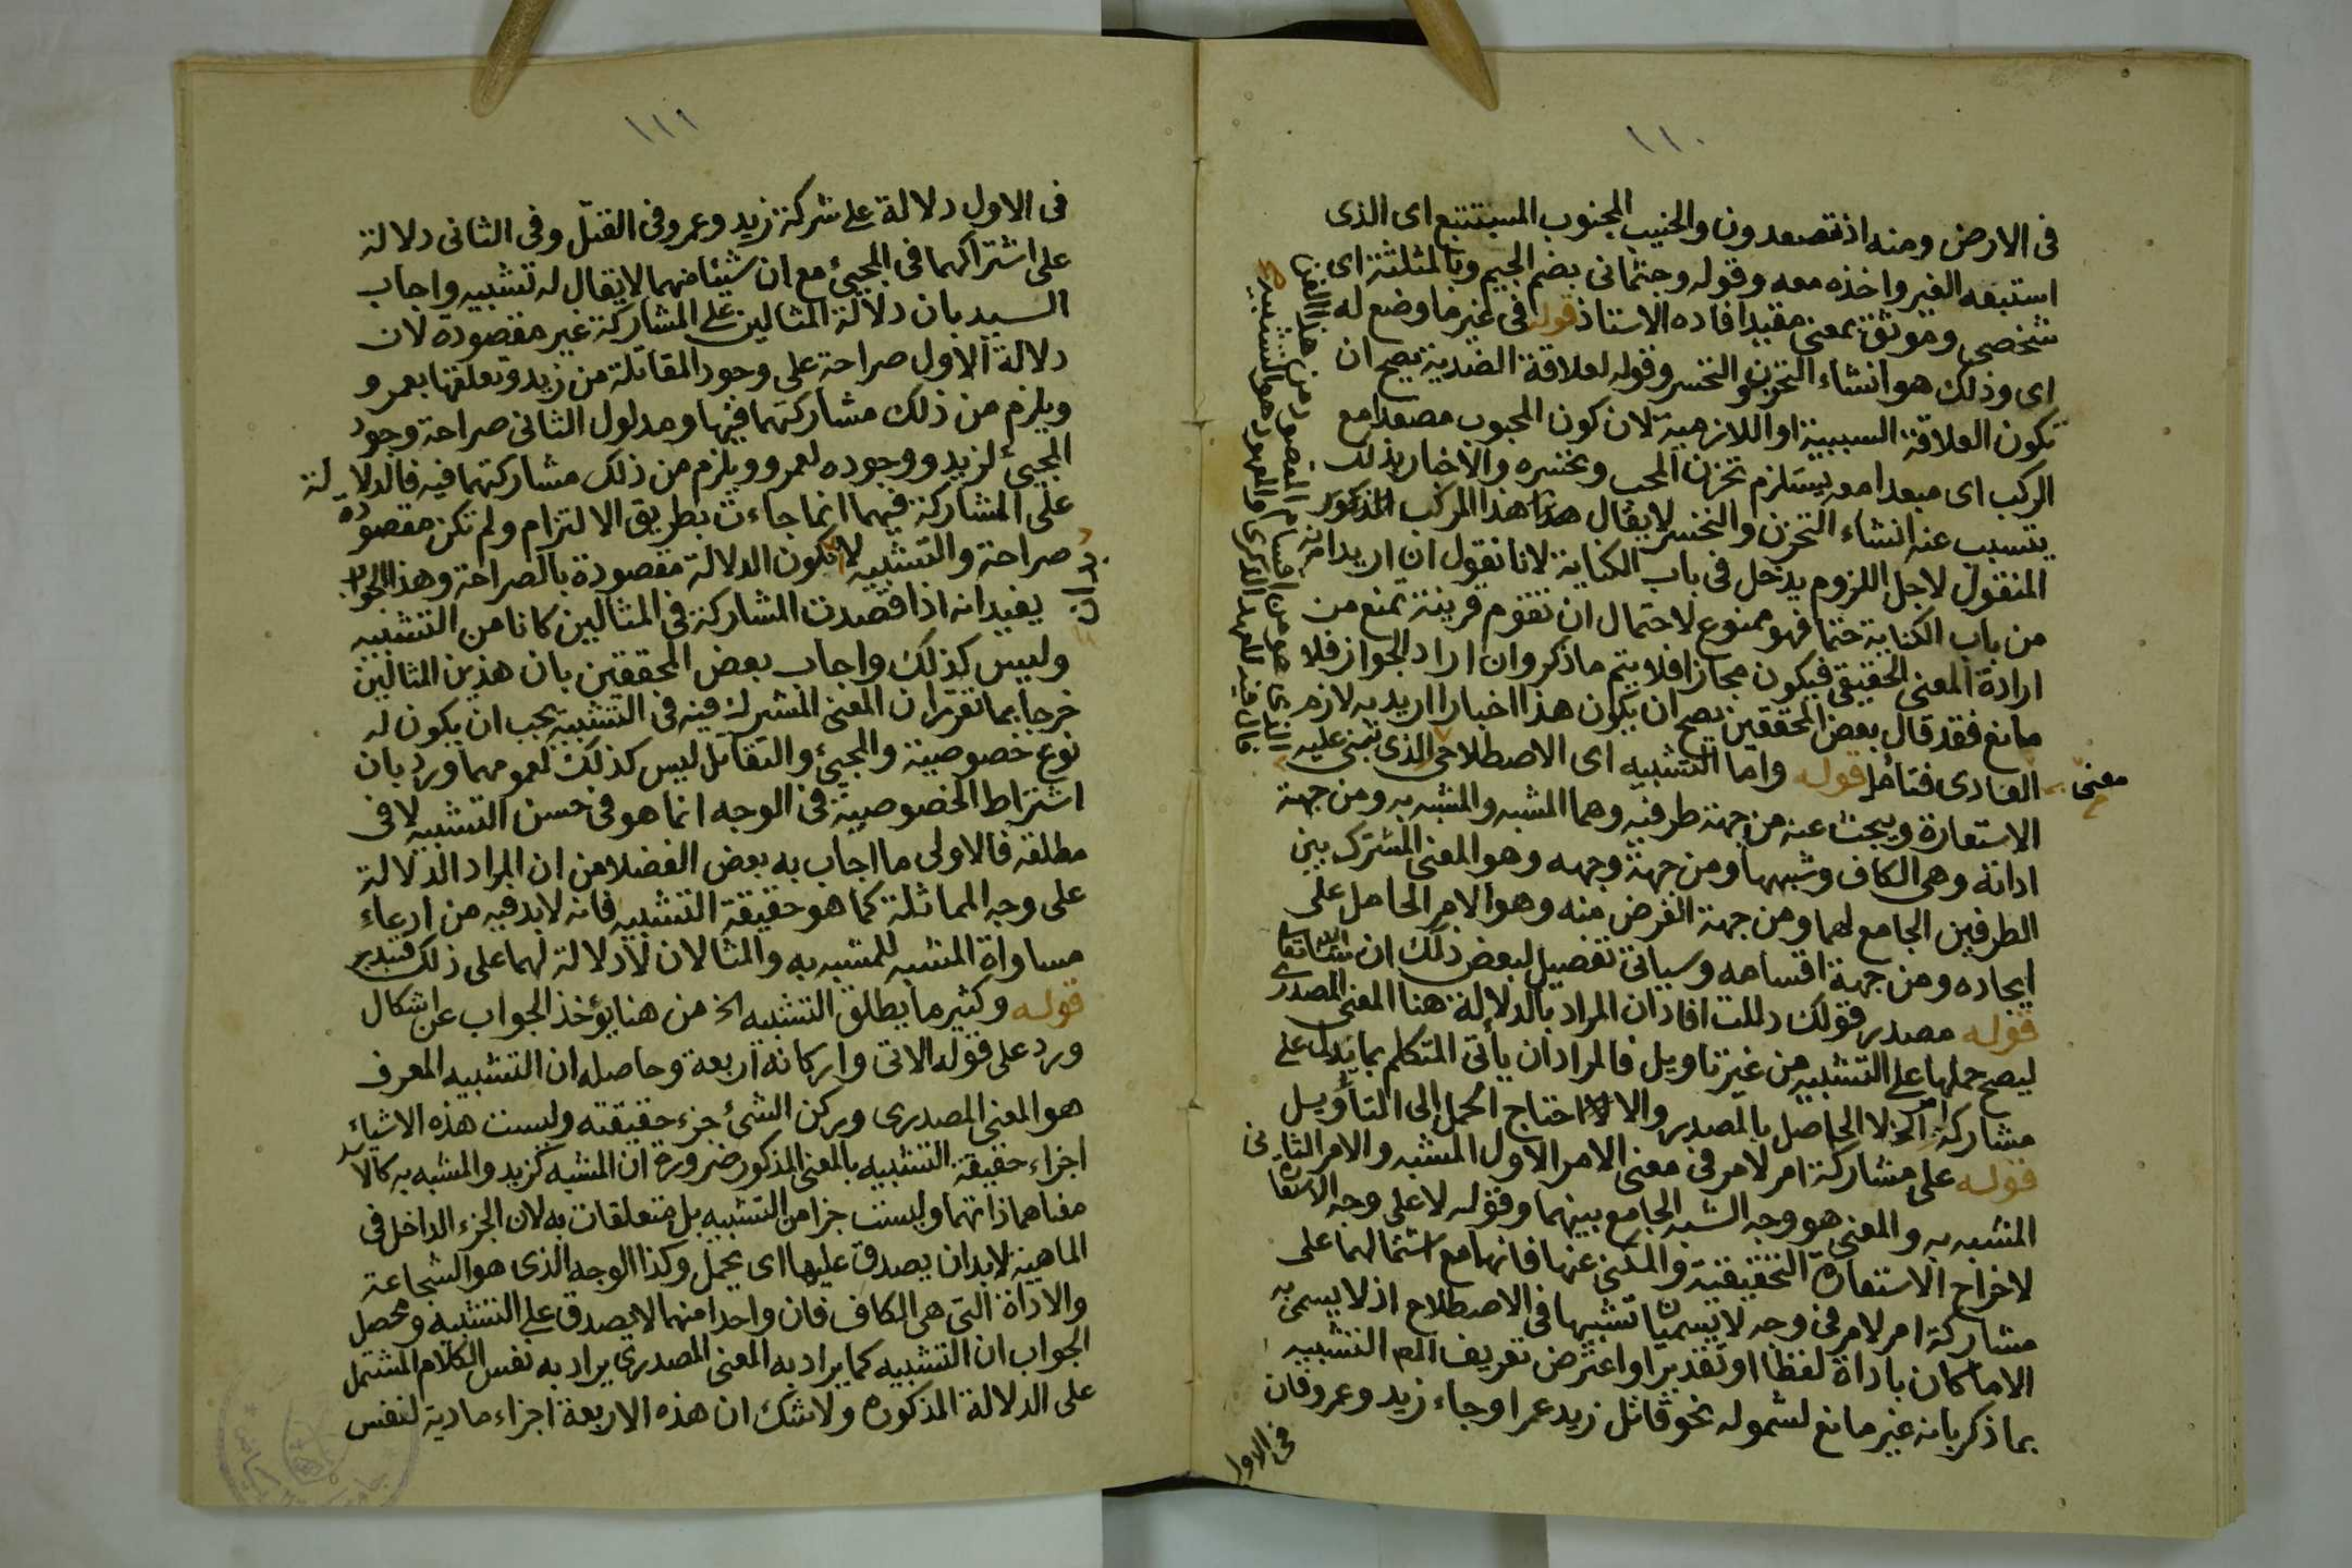 ١١٠
فى الارض ومنه اذ تصعدون والجنيب المجنوب المستتبع اى الذى
استتبعه الغير واخذه معه وقوله وجثمانى بضم الجيم وبالمثلثة اى
شخصى وموثق بمعنى مقيد افاده الاستاذ قوله فى غير ما وضع له
اى وذلك هو انشاء التحزن والتحسر وقوله لعلاقة الضدية يصح ان
تكون العلاقة السببية او اللازمية لان كون المحبوب مصعدا مع
الركب اى مبعدا معه يستلزم تحزن المحب وتحسره والاخبار بذلك
يتسبب عنه انشاء التحزن والتحسر لا يقال هذا المركب المذكور
المنقول لاجل اللزوم يدخل فى باب الكناية لانا نقول ان اريد انه
من باب الكناية حتما فهو ممنوع لاحتمال ان تقوم قرينة تمنع من
ارادة المعنى الحقيقى فيكون مجازا فلا يتم ما ذكر وان اراد الجواز فلا
مانع فقد قال بعض المحققين يصح ان يكون هذا اخبارا اريد به لازم
معنى
العادى فتامل قوله واما التشبيه اى الاصطلاحى الذى تبنى عليه
الاستعارة ويبحث عنه من جهة طرفيه وهما المشبه والمشبه به ومن جهة
اداته وهى الكاف وشبهها ومن جهة وجهه وهو المعنى المشترك بين
الطرفين الجامع لهما ومن جهة الغرض منه وهو الامر الحامل على
ايجاده ومن جهة اقسامه وسياتى تفصيل لبعض ذلك ان شاء الله تعالى
قوله مصدر قولك دللت افاد ان المراد بالدلالة هنا المعنى المصدرى
ليصح حملها على التشبيه من غير تاويل فالمراد ان يأتى المتكلم بما يدل على
مشاركة امر الخ لا الحاصل بالمصدر والا لاحتاج الحمل الى التأويل
قوله على مشاركة امر لامر فى معنى الامر الاول المشبه والامر الثانى
المشبه به والمعنى هو وجه الشبه الجامع بينهما وقوله لا على وجه الاستعارة
لاخراج الاستعارة التحقيقية والمكنى عنها فانها مع اشتمالهما على
مشاركة امر لامر فى وجه لا يسميان تشبيها فى الاصطلاح اذ لا يسمى به
الا ما كان باداة لفظا او تقديرا واعترض تعريف المص التشبيه
بما ذكر بانه غير مانع لشموله نحو قاتل زيد عمرا وجاء زيد وعمرو فان
فى الاول
الذى هو من اقسام المقصود من هذا الفن
فال فيه للعهد الذكرى والمعهود هو التشبيه
١١١
فى الاول دلالة على شركة زيد وعمرو فى القتل وفى الثانى دلالة
على اشتراكهما فى المجيئ مع ان شيئا منهما لا يقال له تشبيه واجاب
السيد بان دلالة المثالين على المشاركة غير مقصودة لان
دلالة الاول صراحة على وجود المقاتلة من زيد وتعلقها بعمرو
ويلزم من ذلك مشاركتهما فيها ومدلول الثانى صراحة وجود
المجيئ لزيد ووجوده لعمرو ويلزم من ذلك مشاركتهما فيه فالدلالة
على المشاركة فيهما انما جاءت بطريق الالتزام ولم تكن مقصودة
صراحة والتشبيه لا تكون الدلالة مقصودة بالصراحة وهذا الجواب
بد ان
يفيد انه اذا قصدت المشاركة فى المثالين كانا من التشبيه
وليس كذلك واجاب بعض المحققين بان هذين المثالين
خرجا بما تقرر ان المعنى المشترك فيه فى التشبيه يجب ان يكون له
نوع خصوصية والمجيئ والتقاتل ليس كذلك لعمومهما ورد بان
اشتراط الخصوصية فى الوجه انما هو فى حسن التشبيه لا فى
مطلقه فالاولى ما اجاب به بعض الفضلا من ان المراد الدلالة
على وجه المماثلة كما هو حقيقة التشبيه فانه لابد فيه من ادعاء
مساواة المشبه للمشبه به والمثالان لا دلالة لهما على ذلك فتدبر
قوله وكثير ما يطلق التشبيه الخ من هنا يؤخذ الجواب عن اشكال
ورد على قوله الاتى واركانه اربعة وحاصله ان التشبيه المعرف
هو المعنى المصدرى وركن الشئ جزء حقيقته وليست هذه الاشياء
اجزاء حقيقة التشبيه بالمعنى المذكور ضرورة ان المشبه كزيد والمشبه به كالاسد
معناهما ذاتهما وليست جزا من التشبيه بل متعلقات به لان الجزء الداخل فى
الماهية لابد ان يصدق عليها اى يحمل وكذا الوجه الذى هو الشجاعة
والاداة التى هى الكاف فان واحدا منهما لا يصدق على التشبيه ومحصل
الجواب ان التشبيه كما يراد به المعنى المصدرى يراد به نفس الكلام المشتمل
على الدلالة المذكورة ولا شك ان هذه الاربعة اجزاء مادية لنفس